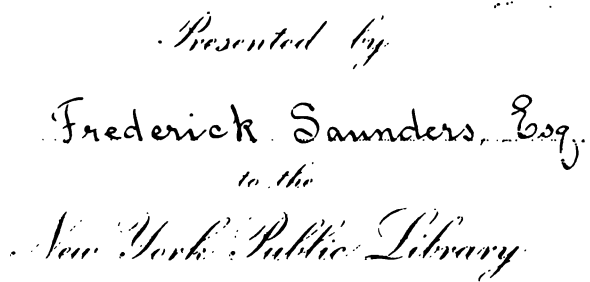 Presented by
Frederick Saunders, Esq.
to the
New York Public Library